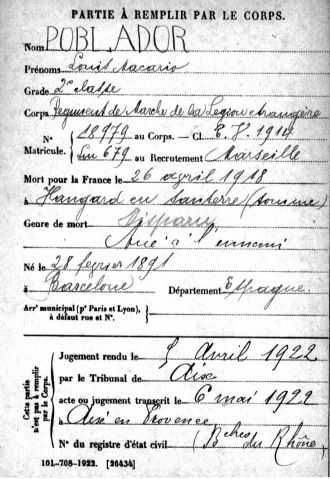 PARTIE À REMPLIR PAR LE CORPS.
Nom POBLADOR
Prénoms Louis Macario
Grade 2e classe
Corps Régiment de Marche de la Légion étrangère
N° 18979 au Corps. — Cl. E.V. 1914
Matricule. Lm 679 au Recrutement Marseille
Mort pour la France le 26 avril 1918
à Hangard en Santerre (Somme)
Genre de mort Disparu
Tué à l'ennemi
Né le 28 fevrier 1891
à Barcelone Département Espagne.
Arrt municipal (pr Paris et Lyon),
à défaut rue et N°.
Cette partie
n'est pas à remplir
par le Corps.
Jugement rendu le 5 Avril 1922
par le Tribunal de Aix
acte ou jugement transcrit le 6 mai 1922
à Aix en Provence
N° du registre d'état civil (Bches du Rhône)
10L-708-1922. [26434]